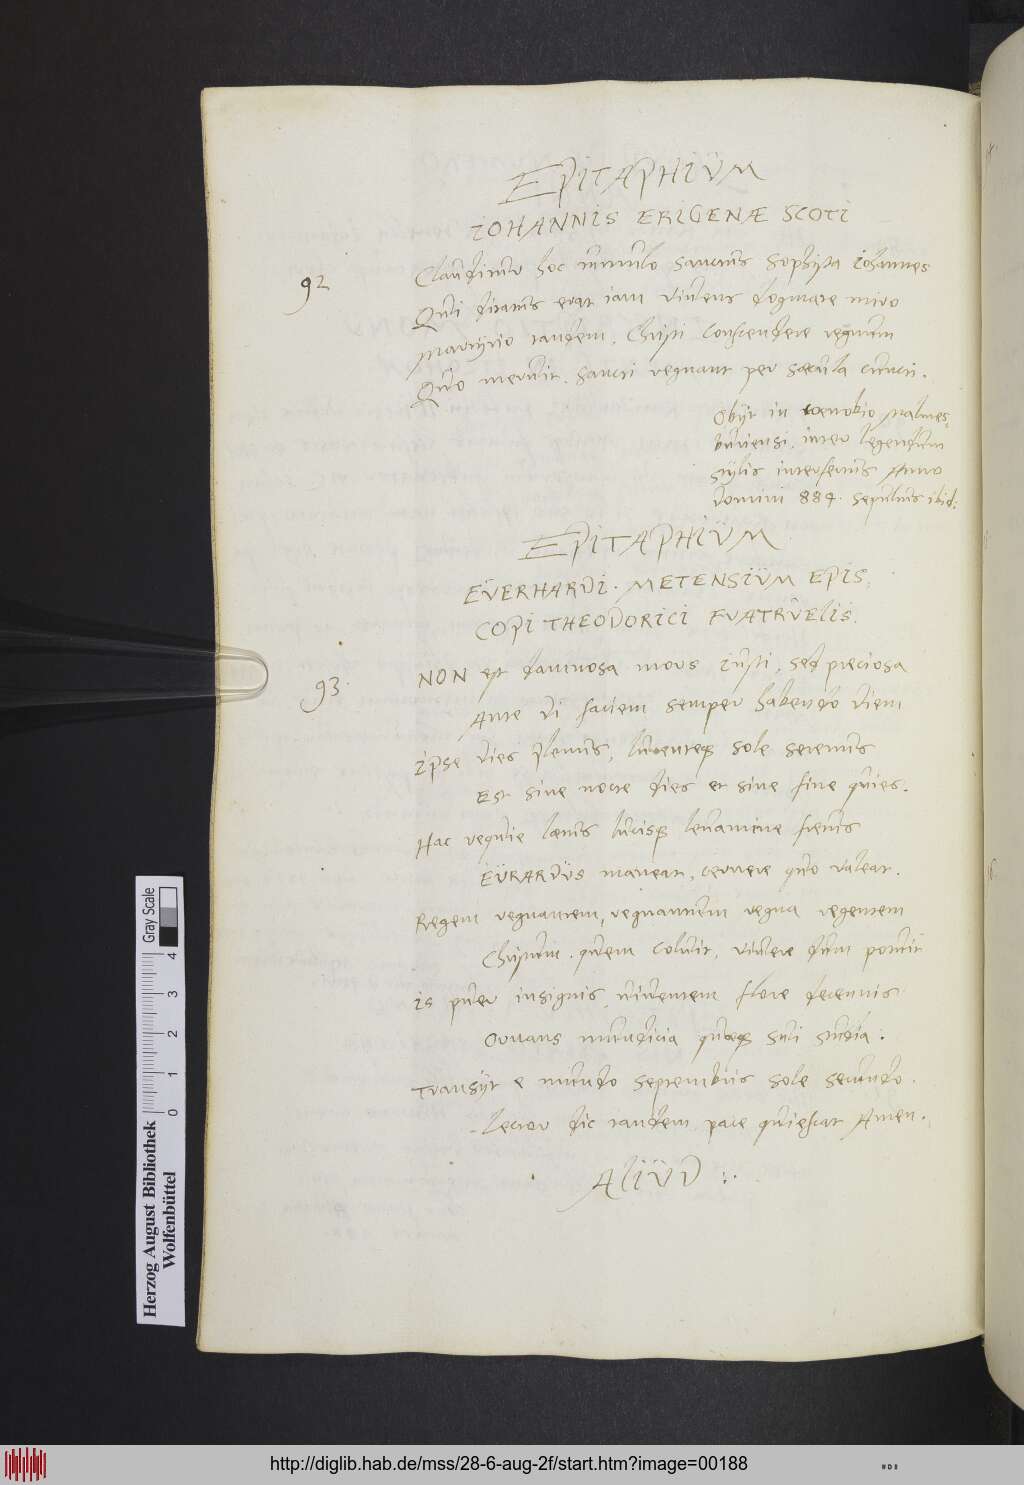 EPITAPHIÜM
IOHANNIS ERIGENÆ SCOTI
92
Claudimur hoc tumulo sanctus sophista Iohannes
Qui ditatus erat iam vivens dogmate miro
Martyrio tandem, Christi conscendere regnum
Quo meruit. sancti regnant per sæcula cuncti.
Obijt in coenobio Malmes,
buriensi, inter legendum
stylis interfectus Anno
Domini 884. sepultus ibid:
EPITAPHIÜM
EÜERHARDI. METENSIÜM EPIS,
COPI THEODORICI FVATRÜELIS.
93.
NON est damnosa mors iusti, sed preciosa
Ante di faciem semper habendo diem
Ipse dies plenus, lucenteq3 sole serenus
Est sine nocte dies et sine fine quies.
Hac requie lætus lucisq3 levamine fretus
EÜRARDÜS maneat, cernere quo valeat.
Regem regnantem, regnantum regna regentem
Christum. quem coluit, vivere dum potuit
Is puer insignis, viventem flore decennis
Ornans munditia quæq3 sui studia.
Transijt e mundo septembris sole secundo.
Lector dic tandem pace quiescat Amen.
ALIÜD :.
Herzog August Bibliothek
Wolfenbüttel
0 1 2 3 4
Gray Scale
http://diglib.hab.de/mss/28-6-aug-2f/start.htm?image=00188